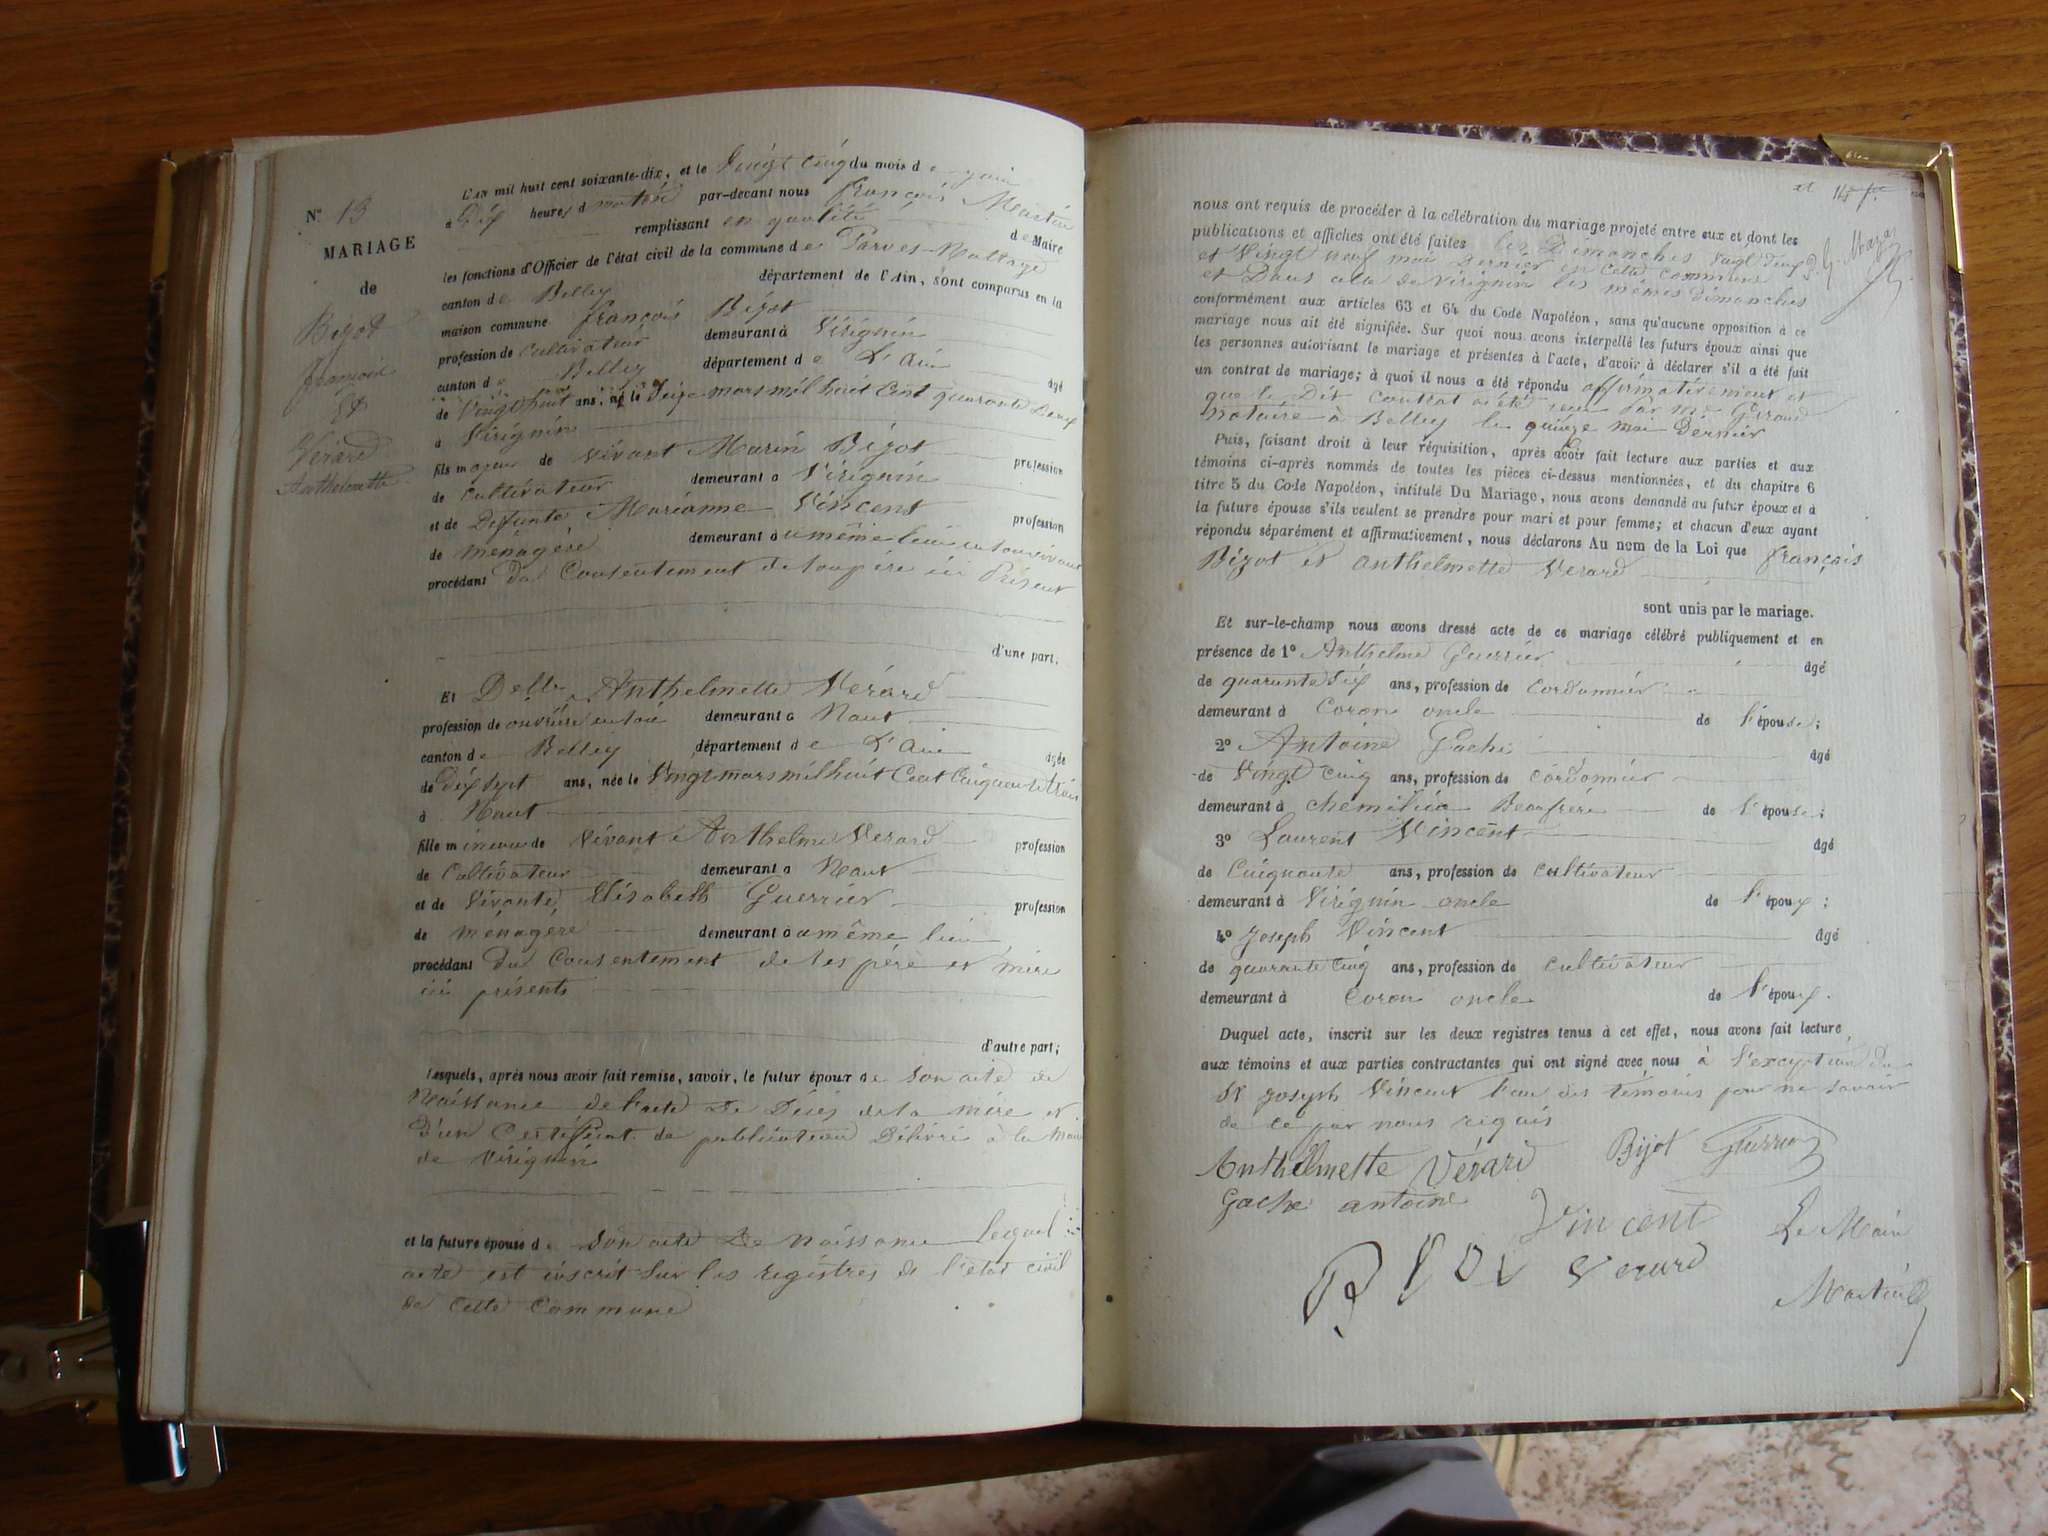 N° 13
MARIAGE
de
Bizot
françois
Et
Vérard
Anthelmette
L'AN mil huit cent soixante-dix, et le Vingt Cinq du mois de juin
à Dix heures du matin par-devant nous françois Martin
remplissant en qualité de Maire
les fonctions d'Officier de l'état civil de la commune de Parves-Nattage
canton de Belley département de l'Ain, sont comparus en la
maison commune françois Bizot
profession de Cultivateur demeurant à Virignin
canton de Belley département de L'Ain âgé
de Vingt huit ans, né le Seize mars mil huit Cent quarante Deux
à Virignin
fils majeur de vivant Marin Bizot profession
de Cultivateur demeurant à Virignin
et de Défunte Marianne Vincent profession
de ménagère demeurant à u même lieu en son vivant
procédant du Consentement de son père ici Présent
d'une part;
Et Delle Anthelmette Vérard
profession de ouvrière en soie demeurant à Nant
canton de Belley département de L'Ain âgée
de Dix sept ans, née le Vingt mars mil huit Cent Cinquante trois
à Nant
fille mineure de Vivant Anthelme Verard profession
de Cultivateur demeurant à Nant
et de Vivante Elisabeth Guerrier profession
de ménagère demeurant à u même lieu
procédant du Consentement de ses père et mère
ici présents
d'autre part;
Lesquels, après nous avoir fait remise, savoir, le futur époux de Son acte de
Naissance de l'acte de Décès de sa mère et
D'un Certificat de publication Délivré à la Mairie
de Virignin
et la future épouse de Son acte De Naissance lequel
acte est inscrit sur les registres de l'état civil
de cette Commune
et
nous ont requis de procéder à la célébration du mariage projeté entre eux et dont les
publications et affiches ont été faites les Dimanches vingt deux
et Vingt neuf mai Dernier en cette commune
et Dans celle de Virignin les mêmes dimanches
conformément aux articles 63 et 64 du Code Napoléon, sans qu'aucune opposition à ce
mariage nous ait été signifiée. Sur quoi nous avons interpellé les futurs époux ainsi que
les personnes autorisant le mariage et présentes à l'acte, d'avoir à déclarer s'il a été fait
un contrat de mariage; à quoi il nous a été répondu affirmativement et
que le Dit Contrat a été reçu par me Giroud
notaire à Belley le quinze mai Dernier
Puis, faisant droit à leur réquisition, après avoir fait lecture aux parties et aux
témoins ci-après nommés de toutes les pièces ci-dessus mentionnées, et du chapitre 6
titre 5 du Code Napoléon, intitulé Du Mariage, nous avons demandé au futur époux et à
la future épouse s'ils veulent se prendre pour mari et pour femme; et chacun d'eux ayant
répondu séparément et affirmativement, nous déclarons Au nom de la Loi que françois
Bizot et anthelmette Verard
sont unis par le mariage.
Et sur-le-champ nous avons dressé acte de ce mariage célébré publiquement et en
présence de 1° Anthelme Guerrier âgé
de quarante Six ans, profession de Cordonnier
demeurant à Coron oncle de l'épouse;
2° Antoine Gache âgé
de Vingt Cinq ans, profession de Cordonnier
demeurant à chemilieu Beaufrère de l'épouse;
3° Laurent Vincent âgé
de Cinquante ans, profession de cultivateur
demeurant à Virignin oncle de l'époux;
4° Joseph Vincent âgé
de quarante Cinq ans, profession de Cultivateur
demeurant à Coron oncle de l'époux.
Duquel acte, inscrit sur les deux registres tenus à cet effet, nous avons fait lecture
aux témoins et aux parties contractantes qui ont signé avec nous à l'exception du
St Joseph Vincent l'un des témoins pour ne savoir
de ce par nous requis
Anthelmette Vérard Bizot Guerrier
Gache antoine Vincent Le Maire
Verard
Martin